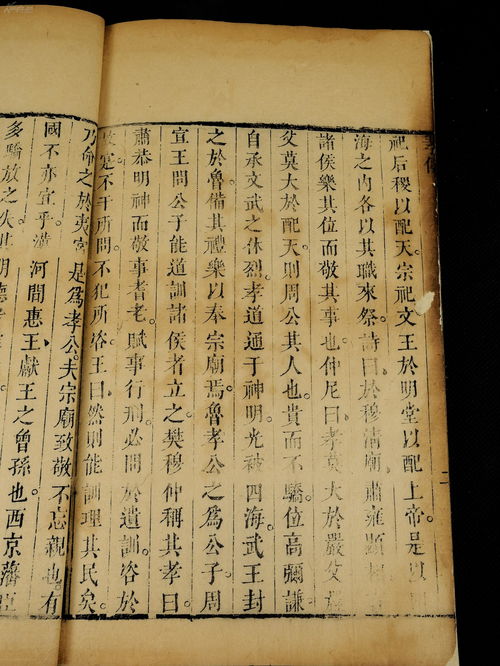 祀后稷以配天。宗祀文王於明堂以配上帝。是以
海之內各以其職來祭。詩曰。於穆淸廟。肅雍顯
諸侯樂其位而敬其事也。仲尼曰。孝莫大於嚴父。嚴
父莫大於配天。則周公其人也。貴而不驕。位高彌謙
自承文武之休烈。孝道通于神明。光被四海。武王封
之於魯。備其禮樂以奉宗廟焉。魯孝公之爲公子。周
宣王問公子能道訓諸侯者立之。樊穆仲稱其孝曰。
肅恭明神而敬事耆老。賦事行刑。必問於遺訓。咨於
故實。不干所問。不犯所咨。王曰。然則能訓理其民矣。
乃命之於夷宮。是爲孝公。夫宗廟致敬。不忘親也。有
國不亦宜乎。漢河間惠王。獻王之曾孫也。西京藩臣
多驕放之失。其明德